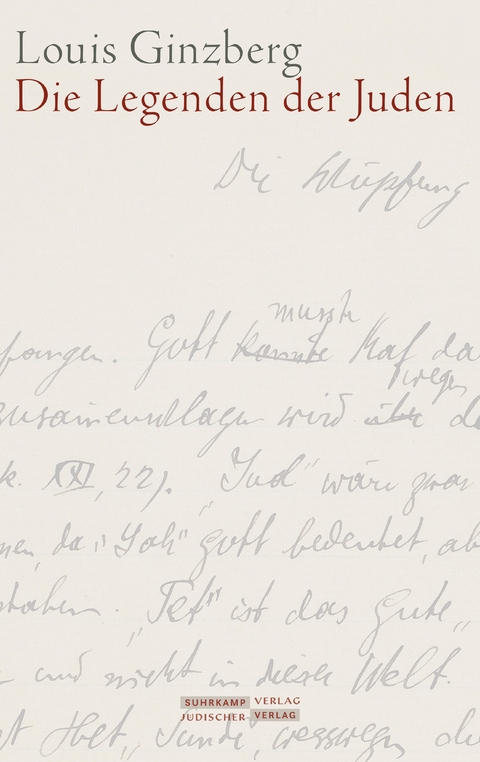 Louis Ginzberg
Die Legenden der Juden
Die Schöpfung
musste
fangen. Gott konnte Kaf da
wegen
zusammenschlagen wird über de
k. XXI, 22). „Jud" wäre zwar
men, da „Yah" Gott bedeutet, ab
staben. „Tet" ist das Gute,
und nicht in dieser Welt.
Het, Sünde, weswegen die
SUHRKAMP VERLAG
JÜDISCHER VERLAG